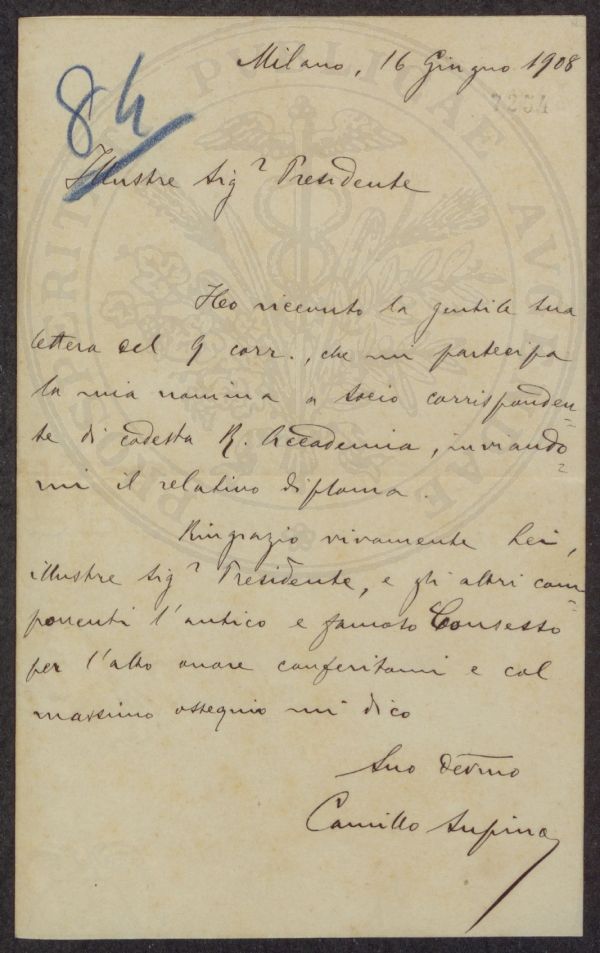 Milano, 16 Giugno 1908
7254
84
Illustre Sig.r Presidente
Ho ricevuto la gentile sua
lettera del 9 corr., che mi partecipa
la mia nomina a socio corrisponden=
te di codesta R. Accademia, inviando=
mi il relativo diploma.
Ringrazio vivamente Lei,
illustre Sig.r Presidente, e gli altri com=
ponenti l'antico e famoso Consesso
per l'alto onore conferitomi e col
massimo ossequio mi dico
Suo devmo
Camillo Supino